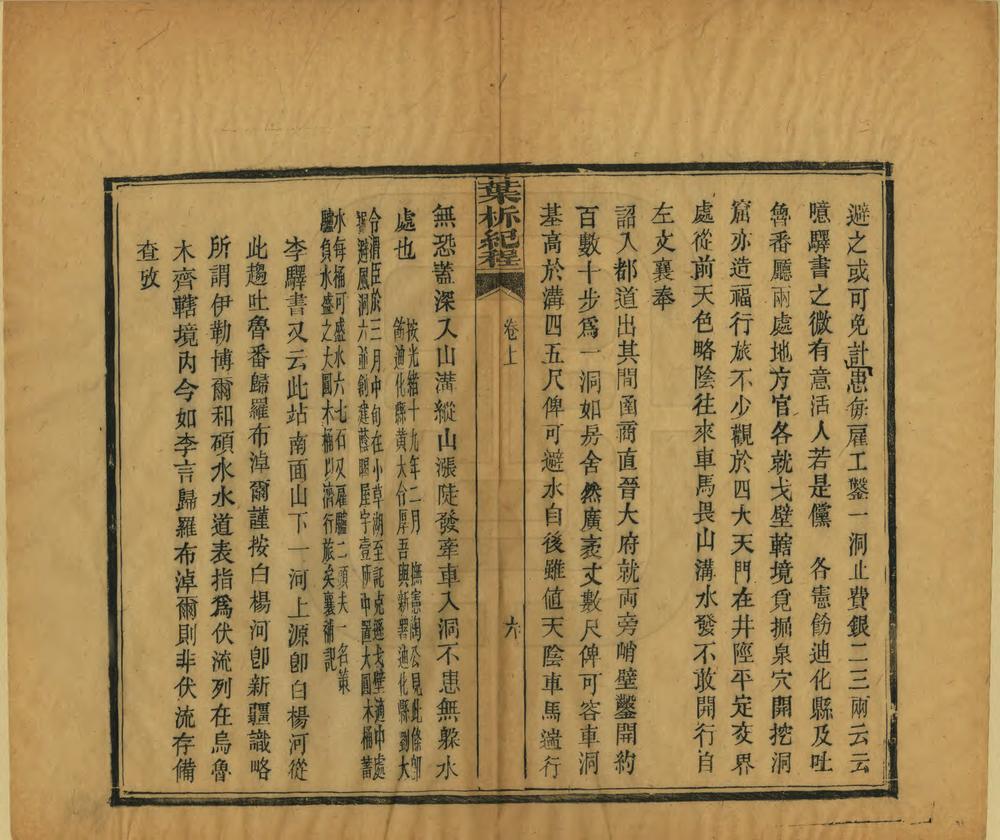 避之或可免計𢙎每雇工鑿一洞止費銀二三兩云云
噫驛書之微有意活人若是儻　各憲飭迪化縣及吐
魯番廳兩處地方官各就戈壁轄境覓掘泉穴開挖洞
窟亦造福行旅不少觀於四大天門在井陘平定交界
處從前天色略陰往來車馬畏山溝水發不敢開行自
左文襄奉
詔入都道出其間函商直晉大府就兩旁峭壁鑿開約
百數十步爲一洞如房舍然廣袤丈數尺俾可容車洞
基高於溝四五尺俾可避水自後雖值天陰車馬遄行
葉柝紀程
卷上
六
無恐蓋深入山溝縱山漲陡發牽車入洞不患無躲水
處也
按光緒十九年二月　撫憲陶公見此條卽
飭迪化縣黃大令厚吾與新署迪化縣劉大
令澄臣於三月中旬在小草湖至託克遜戈壁適中處
掘避風洞六並創建蔭暍屋宇壹所中置大圓木桶蓄
水每桶可盛水六七石又雇驢二頭夫一名策
驢負水盛之大圓木桶以濟行旅矣襄補記
李驛書又云此站南面山下一河上源卽白楊河從
此趨吐魯番歸羅布淖爾謹按白楊河卽新疆識略
所謂伊勒博爾和碩水水道表指爲伏流列在烏魯
木齊轄境內今如李言歸羅布淖爾則非伏流存備
查攷